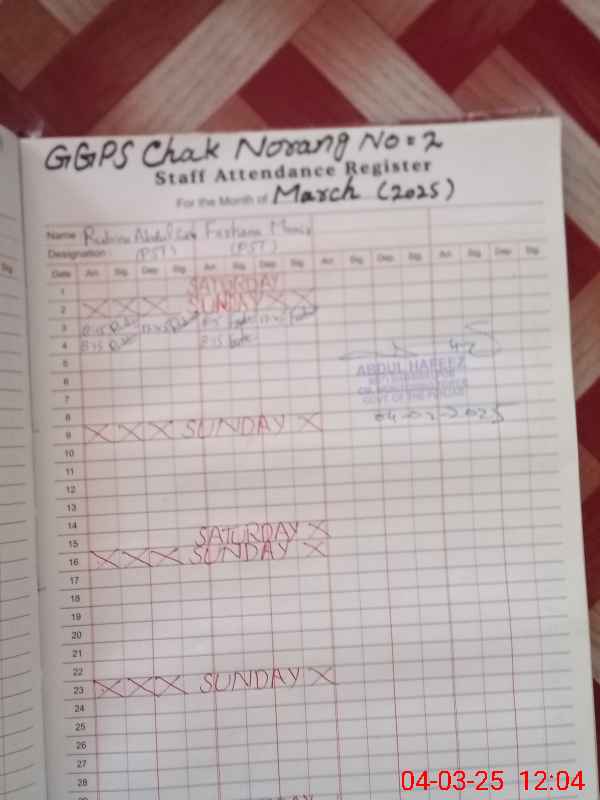 GGPS Chak Norang No = 2
Staff Attendance Register
For the Month of March (2025)
Name Farhana
Designation (PST) (PST)
Date Arr. Sig. Dep. Sig. Arr. Sig. Dep. Sig. Arr. Sig. Dep. Sig. Arr. Sig. Dep. Sig.
1 SATURDAY
2 X X X SUNDAY X X
3 8:15
4 8:15 8:15
5
6
7
8
9 X X X SUNDAY X
10
11
12
13
14
15 SATURDAY X
16 X X X SUNDAY X
17
18
19
20
21
22
23 X X X SUNDAY X
24
25
26
27
28
ABDUL HAFEEZ
GOVT OF THE PUNJAB
04-03-2025
Sig.
04-03-25 12:04